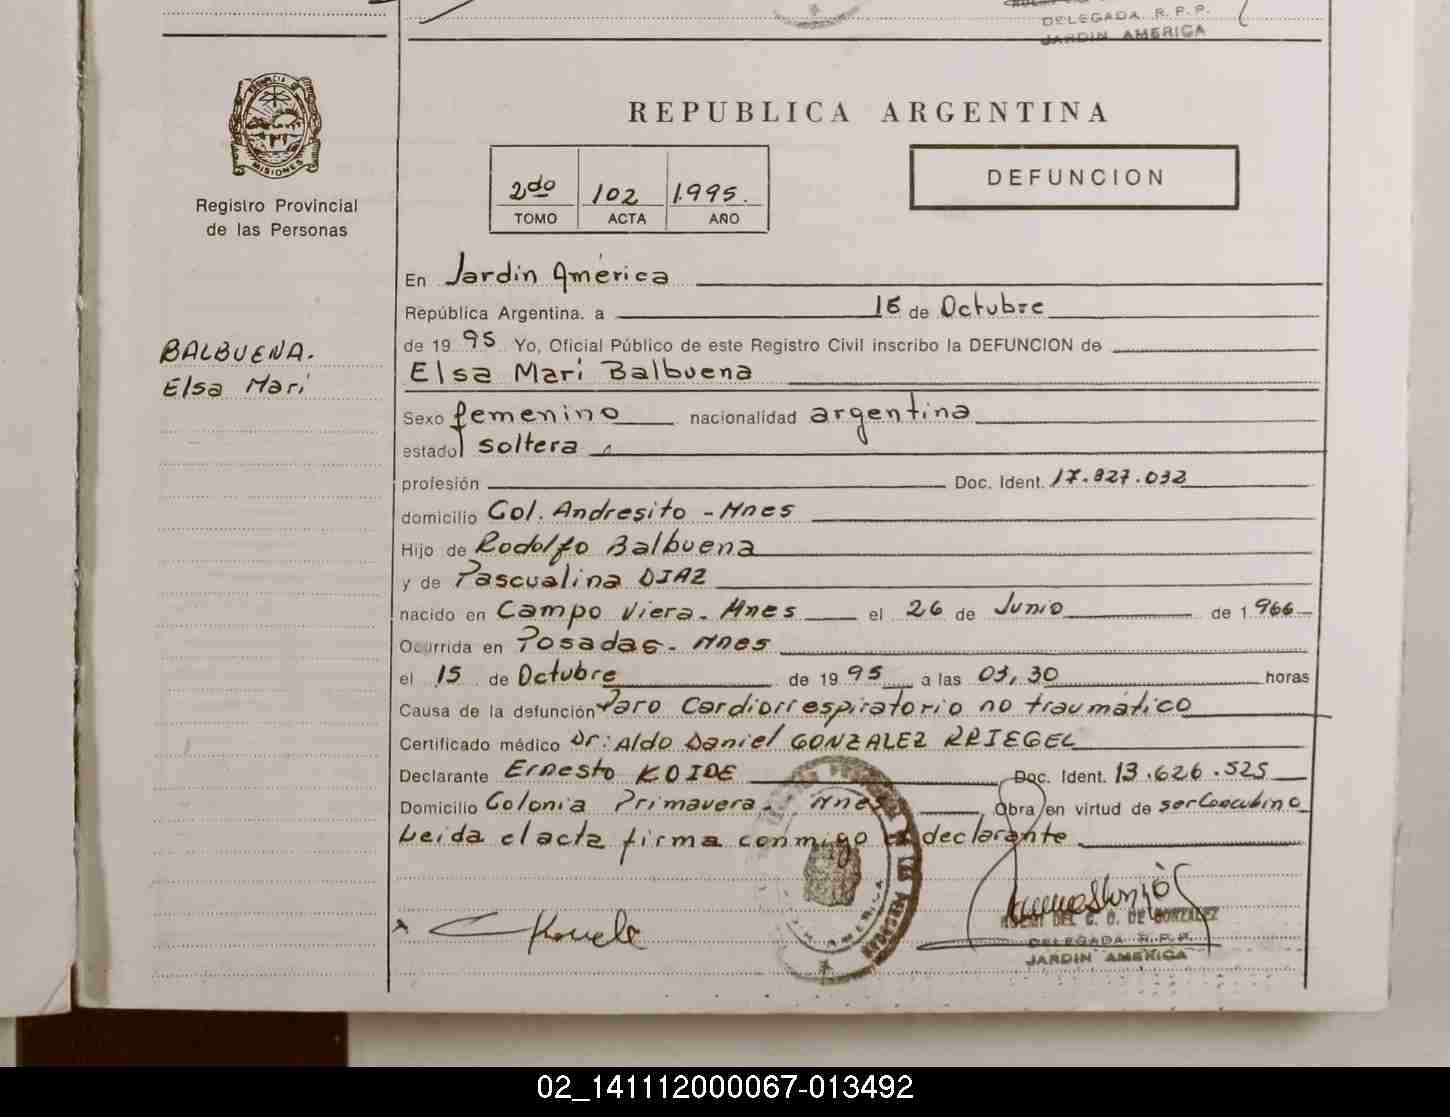 DELEGADA R. P. P.
JARDIN AMERICA
PROVINCIA DE
MISIONES
Registro Provincial
de las Personas
REPUBLICA ARGENTINA
2do 102 1.995.
TOMO ACTA AÑO
DEFUNCION
BALBUENA.
Elsa Mari
En Jardin América
República Argentina. a 16 de Octubre
de 19 95 Yo, Oficial Público de este Registro Civil inscribo la DEFUNCION de
Elsa Mari Balbuena
Sexo femenino nacionalidad argentina
estado soltera
profesión Doc. Ident. 17.827.032
domicilio Col. Andresito - Mnes
Hijo de Rodolfo Balbuena
y de Pascualina DIAZ
nacido en Campo Viera - Mnes el 26 de Junio de 1.966
Ocurrida en Posadas - Mnes
el 15 de Octubre de 19 95 a las 03,30 horas
Causa de la defunción Paro Cardiorrespiratorio no traumático
Certificado médico Dr: Aldo Daniel GONZALEZ KRIEGEL
Declarante Ernesto KOIDE Doc. Ident. 13.626.525
Domicilio Colonia Primavera - Mnes Obra en virtud de ser Concubino
Leida el acta firma conmigo el declarante
DE GONZALEZ
DELEGADA R. P. P.
JARDIN AMERICA
02_141112000067-013492